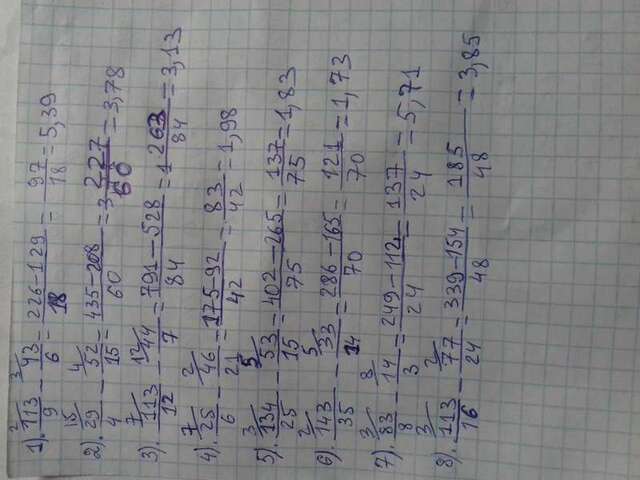 1). ²/113/9 − ³/43/6 = 226−129/18 = 97/18 = 5,39
2). ¹⁵/29/4 − ⁴/52/15 = 435−208/60 = 3 227/60 = 3,78
3). ⁷/113/12 − ¹²/44/7 = 791−528/84 = 1 263/84 = 3,13
4). ⁷/25/6 − ²/46/21 = 175−92/42 = 83/42 = 1,98
5). ³/134/25 − ⁵/53/15 = 402−265/75 = 137/75 = 1,83
6). ²/143/35 − ⁵/33/14 = 286−165/70 = 121/70 = 1,73
7). ³/83/8 − ⁸/14/3 = 249−112/24 = 137/24 = 5,71
8). ³/113/16 − ²/77/24 = 339−154/48 = 185/48 = 3,85